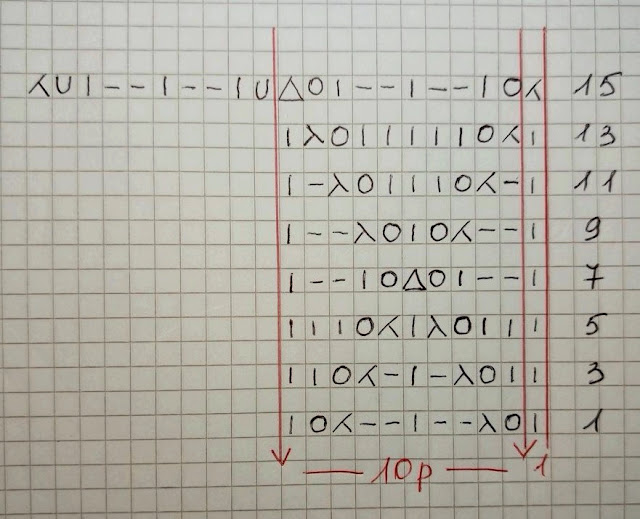 ⋌ U I - - I - - I U △ O I - - I - - I O ⋌ 15
I λ O I I I I I O ⋌ I 13
I - λ O I I I O ⋌ - I 11
I - - λ O I O ⋌ - - I 9
I - - I O △ O I - - I 7
I I I O ⋌ I λ O I I I 5
I I O ⋌ - I - λ O I I 3
I O ⋌ - - I - - λ O I 1
10p 1